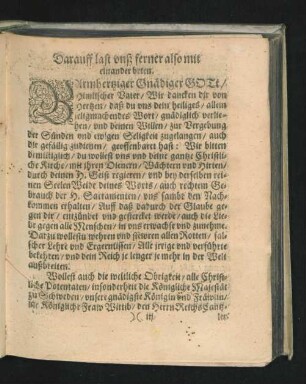 Darauff last vnß ferner also mit
einander beten.
BArmhertziger Gnädiger GOTT/
Himlischer Vater/ Wir dancken dir von
Hertzen/ daß du vns dein heiliges/ allein
seligmachendes Wort/ gnädiglich verlie-
hen/ vnd deinen Willen/ zur Vergebung
der Sünden vnd ewigen Seligkeit zugelangen/ auch
die gefällig zudienen/ geoffenbaret hast: Wir bitten
demütiglich/ du wollest vns vnd deine gantze Christli-
che Kirche/ mit jhren Dienern/ Wächtern vnd Hirten/
durch deinen H. Geist regieren/ vnd bey derselben rei-
nen Seelen Weide deines Worts/ auch rechtem Ge-
brauch der H. Sacramenten/ vns sambt den Nach-
kommen erhalten/ Auff daß dadurch der Glaube ge-
gen dir/ entzündet vnd gestercket werde/ auch die Lie-
be gegen alle Menschen/ in vns erwachse vnd zuneme.
Dar zu wollestu wehren vnd stewren allen Rotten/ fal-
scher Lehre vnd Ergernüssen/ Alle jrrige vnd verführte
bekehren/ vnd dein Reich je lenger je mehr in der Welt
außbreiten.
Wollest auch die weltliche Obrigkeit/ alle Christli-
che Potentaten/ insonderheit die Königliche Majestät
zu Schweden/ vnsere gnädigste Königin vnd Fräwlin/
die Königliche Fraw Wittib/ den Herrn Reichs Cantz-
)( iij ler